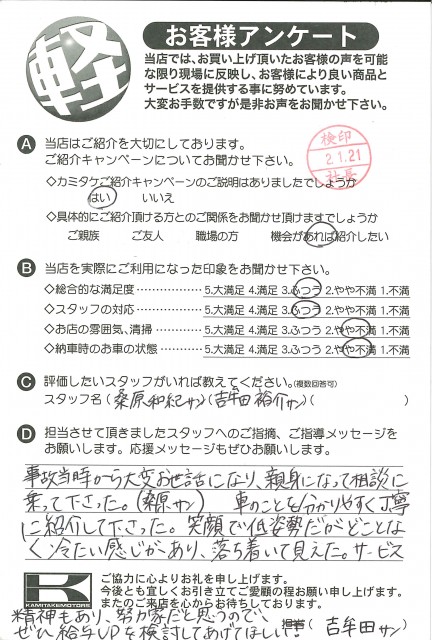 軽
お客様アンケート
当店では、お買い上げ頂いたお客様の声を可能
な限り現場に反映し、お客様により良い商品と
サービスを提供する事に努めています。
大変お手数ですが是非お声をお聞かせ下さい。
検印
2.1.21
社長
A 当店はご紹介を大切にしております。
ご紹介キャンペーンについてお聞かせ下さい。
◇カミタケご紹介キャンペーンのご説明はありましたでしょうか
はい いいえ
◇具体的にご紹介頂ける方とのご関係をお聞かせ頂けますでしょうか
ご親族 ご友人 職場の方 機会があれば紹介したい
B 当店を実際にご利用になった印象をお聞かせ下さい。
◇総合的な満足度 ……………… 5.大満足 4.満足 3.ふつう 2.やや不満 1.不満
◇スタッフの対応 ……………… 5.大満足 4.満足 3.ふつう 2.やや不満 1.不満
◇お店の雰囲気、清掃 ………… 5.大満足 4.満足 3.ふつう 2.やや不満 1.不満
◇納車時のお車の状態 ………… 5.大満足 4.満足 3.ふつう 2.やや不満 1.不満
C 評価したいスタッフがいれば教えてください。(複数回答可)
スタッフ名 (桑原和紀サン) (吉牟田裕介サン) ( )
D 担当させて頂きましたスタッフへのご指摘、ご指導メッセージを
お願いします。応援メッセージもぜひお願いします。
事故当時から大変お世話になり、親身になって相談に
乗って下さった。(桑原サン) 車のことを分かりやすく丁寧
に紹介して下さった。笑顔で低姿勢だがどことな
く冷たい感じがあり、落ち着いて見えた。サービス
K
KAMITAKEMOTORS
ご協力に心よりお礼を申し上げます。
今後とも宜しくお引き立てご愛顧の程お願い申し上げます。
またのご来店を心からお待ちしております。
精神もあり、努力家だと思うので、
ぜひ給与UPを検討してあげてほしい! 担当 (吉牟田サン)